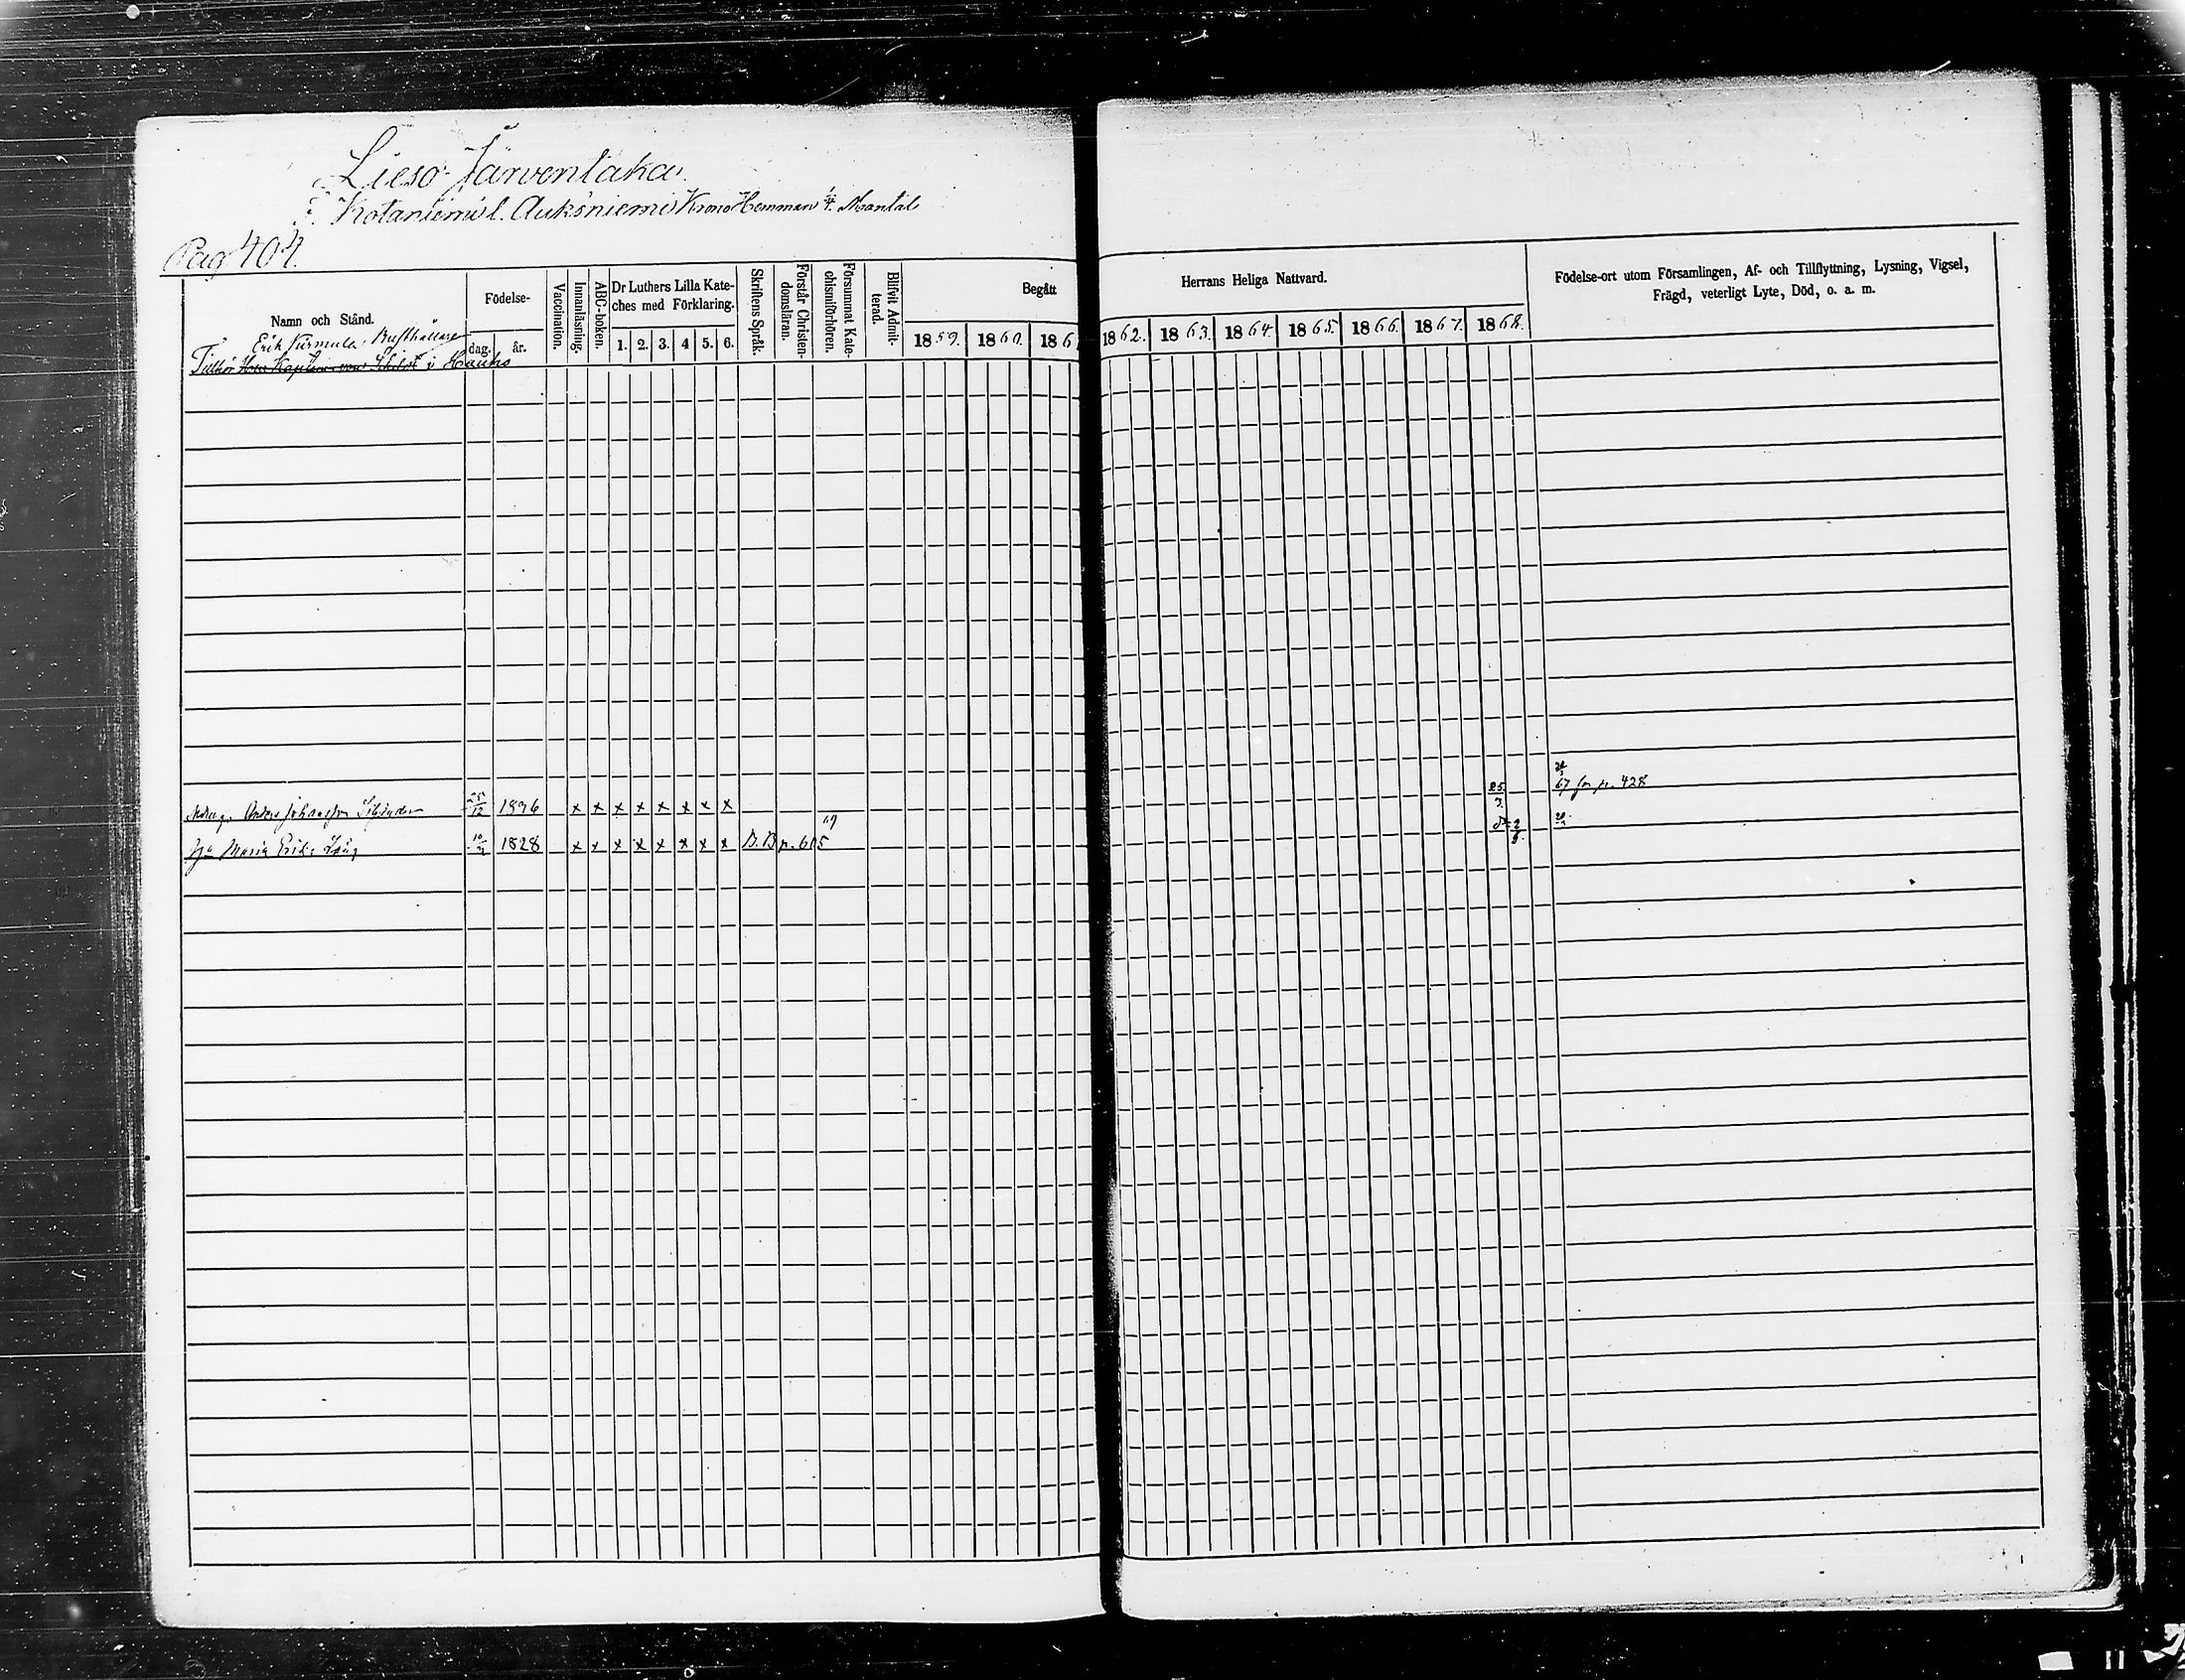 Lieso Järventaka
Kotaniemi l. Auksniemi Krono Hemman 1/4 Mantal
Pag 404.
Namn och Stånd.
Födelse-
dag.
år.
Vaccination.
Innanläsning.
ABC-boken.
Dr Luthers Lilla Kate-
ches med Förklaring.
1. 2. 3. 4 5. 6.
Skriftens Språk.
Förstår Christen-
domsläran.
Försummat Kate-
chismiförhören.
Blifvit Admit-
terad.
Begått
Herrans Heliga Nattvard.
1859. 1860. 186 1862. 1863. 1864. 1865. 1866. 1867. 1868.
Födelse-ort utom Församlingen, Af- och Tillflyttning, Lysning, Vigsel,
Frägd, veterligt Lyte, Död, o. a. m.
Erik Rusthållare
Tillhör i Hauho
Anders Johansson 25/12 1896 x x x x x x x x 25/3. 67 fr p. 428
Maria Eriks 1828 x x x x x x x x B.B p. 605